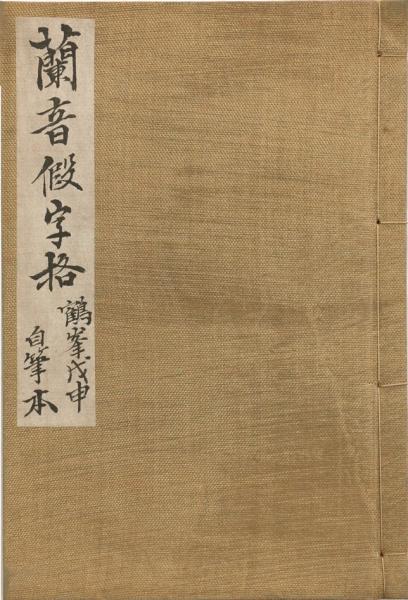 蘭音假字格
鶴峯戊申
自筆本